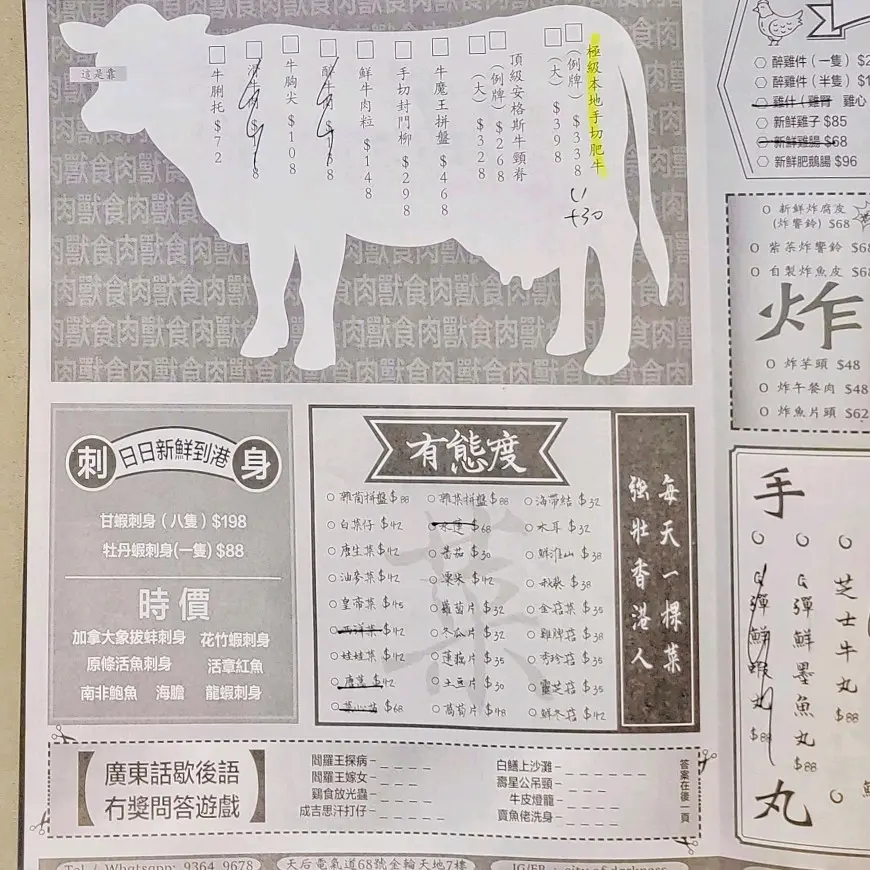 這是靠
極級本地手切肥牛
(例牌) $338
(大) $398
U
+30
頂級安格斯牛頸脊
(例牌) $268
(大) $328
牛魔王拼盤 $468
手切封門柳 $298
鮮牛肉粒 $148
牛胸尖 $108
牛脷托 $72
獸食肉獸食肉獸食肉獸食肉
醉雞件 (一隻) $2
醉雞件 (半隻) $1
雞什 (雞腎 雞心
新鮮雞子 $85
新鮮雞腸 $68
新鮮肥鵝腸 $96
新鮮炸腐皮
(炸響鈴) $68
紫菜炸響鈴 $68
自製炸魚皮 $68
炸
炸芋頭 $48
炸午餐肉 $48
炸魚片頭 $62
刺 日日新鮮到港 身
甘蝦刺身 (八隻) $198
牡丹蝦刺身(一隻) $88
時價
加拿大象拔蚌刺身 花竹蝦刺身
原條活魚刺身 活章紅魚
南非鮑魚 海膽 龍蝦刺身
有態度
菜
雜菌拼盤 $88
白菜仔 $42
唐生菜 $42
油麥菜 $42
皇帝菜 $45
西洋菜 $42
娃娃菜 $42
唐蒿 $42
菜心苗 $68
雜菜拼盤 $88
水蓮 $68
番茄 $30
粟米 $42
蘿蔔片 $32
冬瓜片 $32
蓮藕片 $35
土豆片 $30
萵筍片 $48
海帶結 $32
木耳 $32
鮮淮山 $38
$38
金菇菜 $35
雞脾菇 $38
秀珍菇 $35
靈芝菇 $35
鮮冬菇 $42
每天一棵菜
強壯香港人
手
芝士牛丸 $88
彈鮮墨魚丸 $88
彈鮮蝦丸 $88
丸
廣東話歇後語
冇獎問答遊戲
閻羅王探病- _ _ _ _
閻羅王嫁女- _ _ _
鷄食放光蟲- _ _ _ _
成吉思汗打仔- _ _ _ _ _
白鱔上沙灘- _ _ _ _ _ _ _
壽星公吊頸- _ _ _ _
牛皮燈籠- _ _ _ _ _
賣魚佬洗身- _ _ _ _
答案在後一頁
Tel / Whatsapp: 9364 9678
天后電氣道68號金輪天地7樓
IG/FB : city of darkness